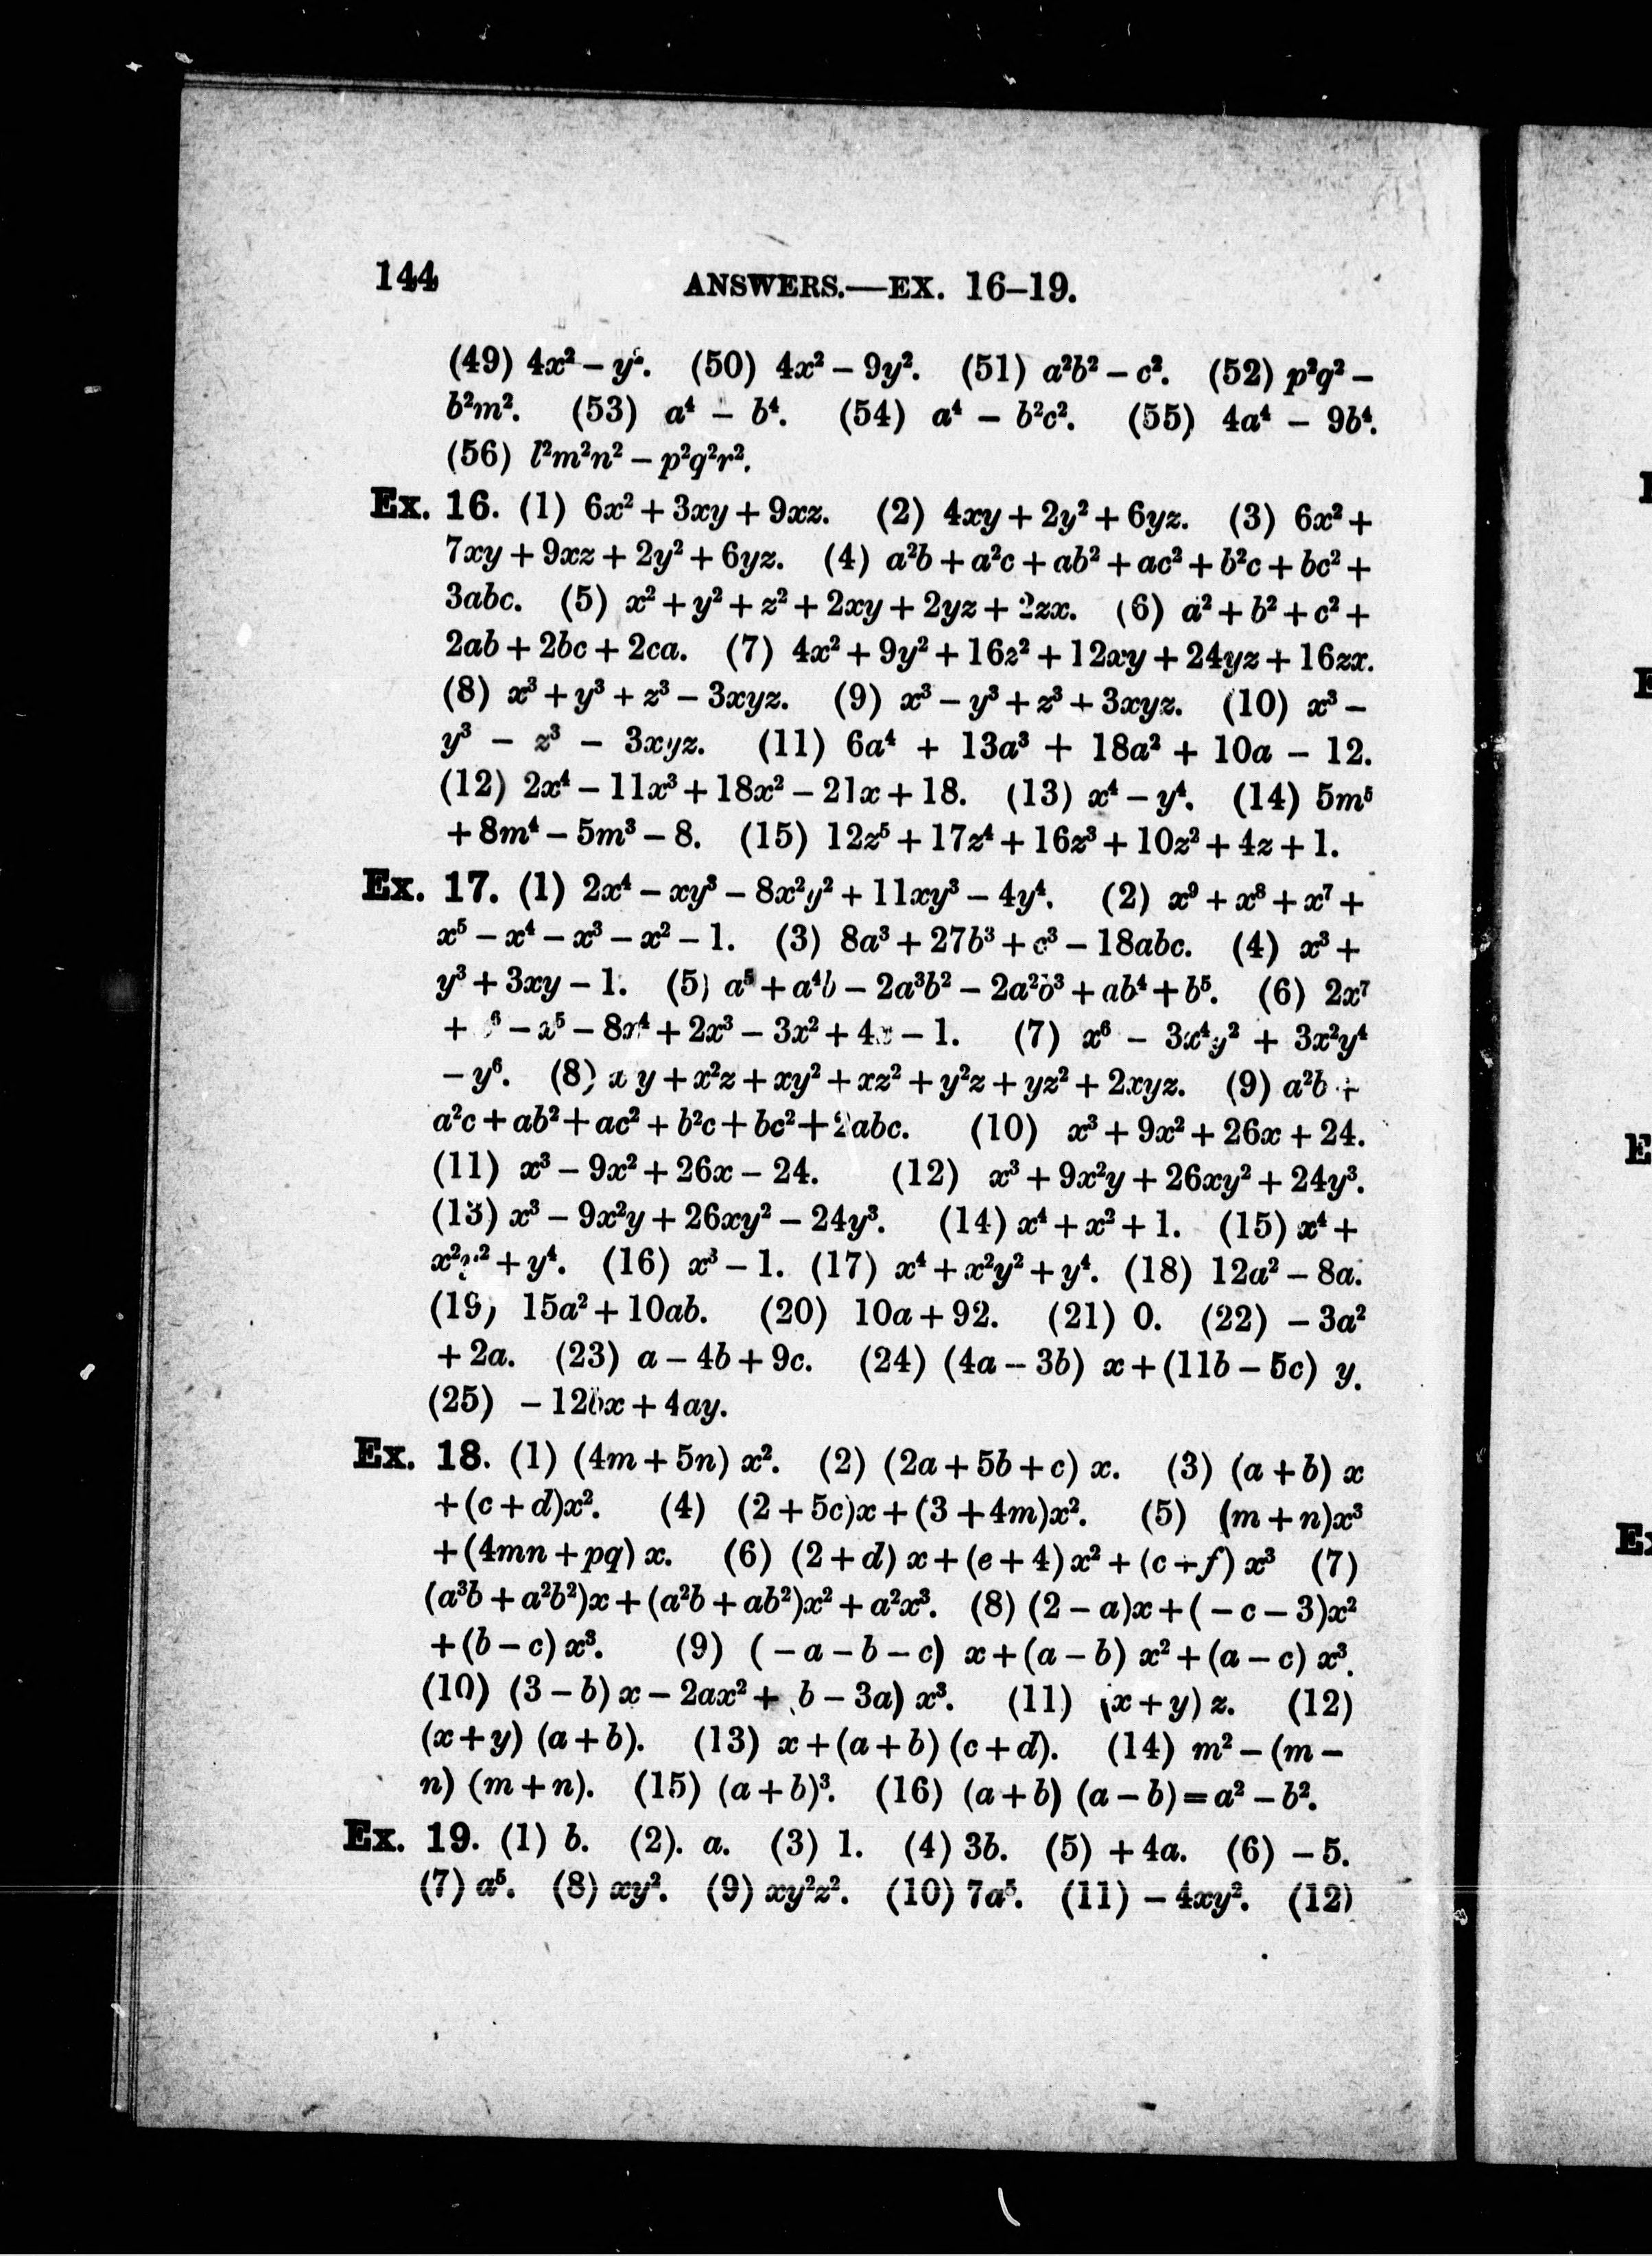 144 ANSWERS.—EX. 16–19.
(49) 4x² – y². (50) 4x² – 9y². (51) a²b² – c². (52) p²q² –
b²m². (53) a⁴ – b⁴. (54) a⁴ – b²c². (55) 4a⁴ – 9b⁴.
(56) l²m²n² – p²q²r².
Ex. 16. (1) 6x² + 3xy + 9xz. (2) 4xy + 2y² + 6yz. (3) 6x² +
7xy + 9xz + 2y² + 6yz. (4) a²b + a²c + ab² + ac² + b²c + bc² +
3abc. (5) x² + y² + z² + 2xy + 2yz + 2zx. (6) a² + b² + c² +
2ab + 2bc + 2ca. (7) 4x² + 9y² + 16z² + 12xy + 24yz + 16zx.
(8) x³ + y³ + z³ – 3xyz. (9) x³ – y³ + z³ + 3xyz. (10) x³ –
y³ – z³ – 3xyz. (11) 6a⁴ + 13a³ + 18a² + 10a – 12.
(12) 2x⁴ – 11x³ + 18x² – 21x + 18. (13) x⁴ – y⁴. (14) 5m⁵
+ 8m⁴ – 5m³ – 8. (15) 12z⁵ + 17z⁴ + 16z³ + 10z² + 4z + 1.
Ex. 17. (1) 2x⁴ – xy³ – 8x²y² + 11xy³ – 4y⁴. (2) x⁹ + x⁸ + x⁷ +
x⁵ – x⁴ – x³ – x² – 1. (3) 8a³ + 27b³ + c³ – 18abc. (4) x³ +
y³ + 3xy – 1. (5) a⁵ + a⁴b – 2a³b² – 2a²b³ + ab⁴ + b⁵. (6) 2x⁷
+ ⁶ – x⁵ – 8x⁴ + 2x³ – 3x² + 4x – 1. (7) x⁶ – 3x⁴y² + 3x²y⁴
– y⁶. (8) x y + x²z + xy² + xz² + y²z + yz² + 2xyz. (9) a²b +
a²c + ab² + ac² + b²c + bc² + 2abc. (10) x³ + 9x² + 26x + 24.
(11) x³ – 9x² + 26x – 24. (12) x³ + 9x²y + 26xy² + 24y³.
(13) x³ – 9x²y + 26xy² – 24y³. (14) x⁴ + x² + 1. (15) x⁴ +
x²y² + y⁴. (16) x³ – 1. (17) x⁴ + x²y² + y⁴. (18) 12a² – 8a.
(19) 15a² + 10ab. (20) 10a + 92. (21) 0. (22) – 3a²
+ 2a. (23) a – 4b + 9c. (24) (4a – 3b) x + (11b – 5c) y.
(25) – 12bx + 4ay.
Ex. 18. (1) (4m + 5n) x². (2) (2a + 5b + c) x. (3) (a + b) x
+ (c + d)x². (4) (2 + 5c)x + (3 + 4m)x². (5) (m + n)x³
+ (4mn + pq) x. (6) (2 + d) x + (e + 4) x² + (c + f) x³ (7)
(a³b + a²b²)x + (a²b + ab²)x² + a²x³. (8) (2 – a)x + ( – c – 3)x²
+ (b – c) x³. (9) ( – a – b – c) x + (a – b) x² + (a – c) x³.
(10) (3 – b) x – 2ax² + (b – 3a) x³. (11) (x + y) z. (12)
(x + y) (a + b). (13) x + (a + b) (c + d). (14) m² – (m –
n) (m + n). (15) (a + b)³. (16) (a + b) (a – b) = a² – b².
Ex. 19. (1) b. (2). a. (3) 1. (4) 3b. (5) + 4a. (6) – 5.
(7) a⁵. (8) xy². (9) xy²z². (10) 7a⁵. (11) – 4xy². (12)